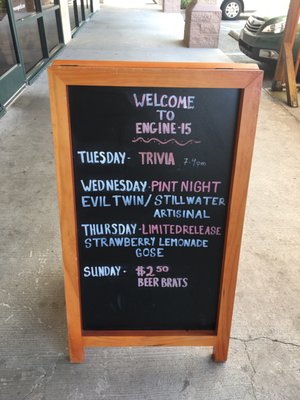 WELCOME
TO
ENGINE-15
TUESDAY- TRIVIA 7-9pm
WEDNESDAY-PINT NIGHT
EVIL TWIN/STILLWATER
ARTISINAL
THURSDAY-LIMITED RELEASE
STRAWBERRY LEMONADE
GOSE
SUNDAY- $2.50
BEER BRATS